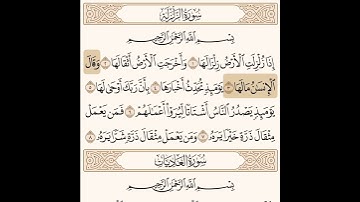 سُورَةُ الزَّلْزَلَةِ
بِسْمِ اللَّهِ الرَّحْمَٰنِ الرَّحِيمِ
إِذَا زُلْزِلَتِ الْأَرْضُ زِلْزَالَهَا ١ وَأَخْرَجَتِ الْأَرْضُ أَثْقَالَهَا ٢ وَقَالَ
الْإِنسَانُ مَا لَهَا ٣ يَوْمَئِذٍ تُحَدِّثُ أَخْبَارَهَا ٤ بِأَنَّ رَبَّكَ أَوْحَىٰ لَهَا ٥
يَوْمَئِذٍ يَصْدُرُ النَّاسُ أَشْتَاتًا لِّيُرَوْا أَعْمَالَهُمْ ٦ فَمَن يَعْمَلْ
مِثْقَالَ ذَرَّةٍ خَيْرًا يَرَهُ ٧ وَمَن يَعْمَلْ مِثْقَالَ ذَرَّةٍ شَرًّا يَرَهُ ٨
سُورَةُ الْعَادِيَاتِ
بِسْمِ اللَّهِ الرَّحْمَٰنِ الرَّحِيمِ